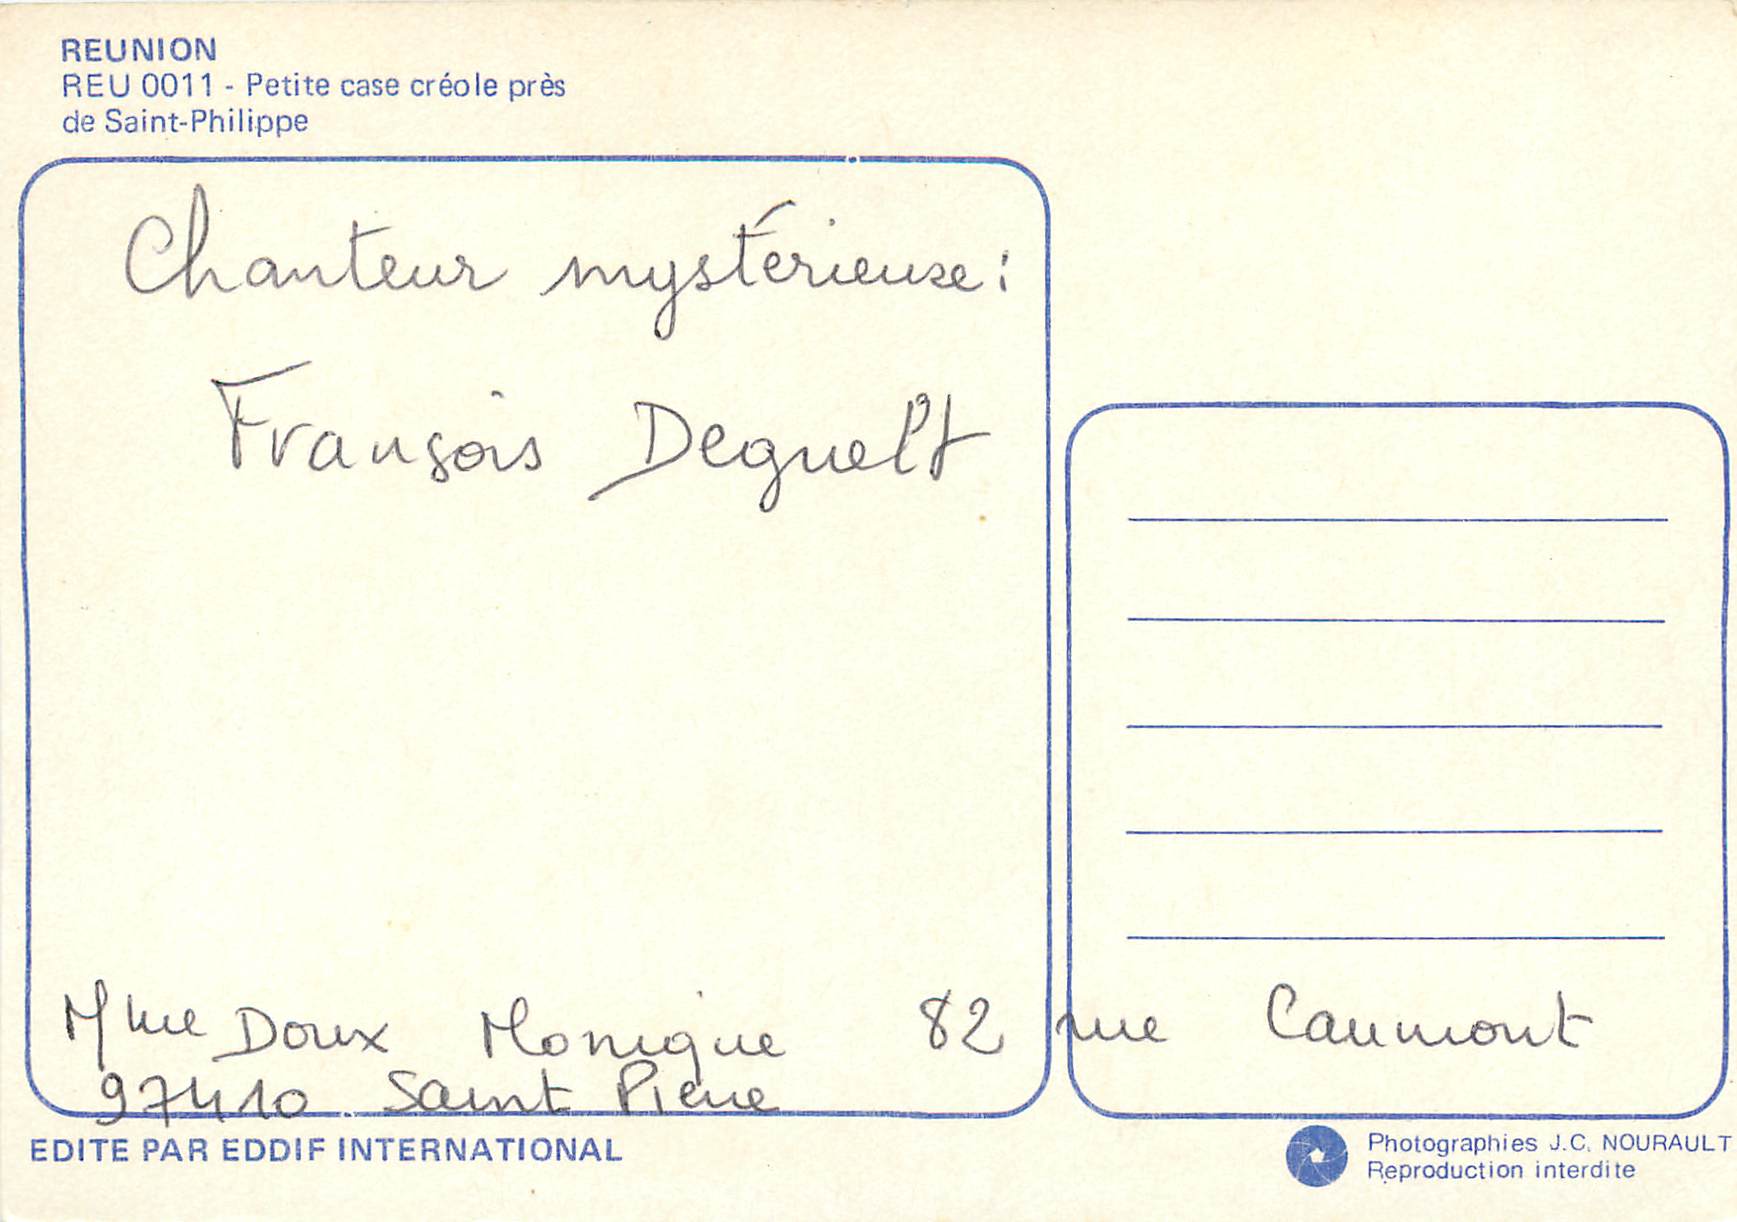 REUNION
REU 0011 - Petite case créole près
de Saint-Philippe
Chanteur mystérieuse :
François Deguelt
Mme Doux Monique 82 rue Caumont
97410 Saint Pierre
EDITE PAR EDDIF INTERNATIONAL
Photographies J.C. NOURAULT
Reproduction interdite